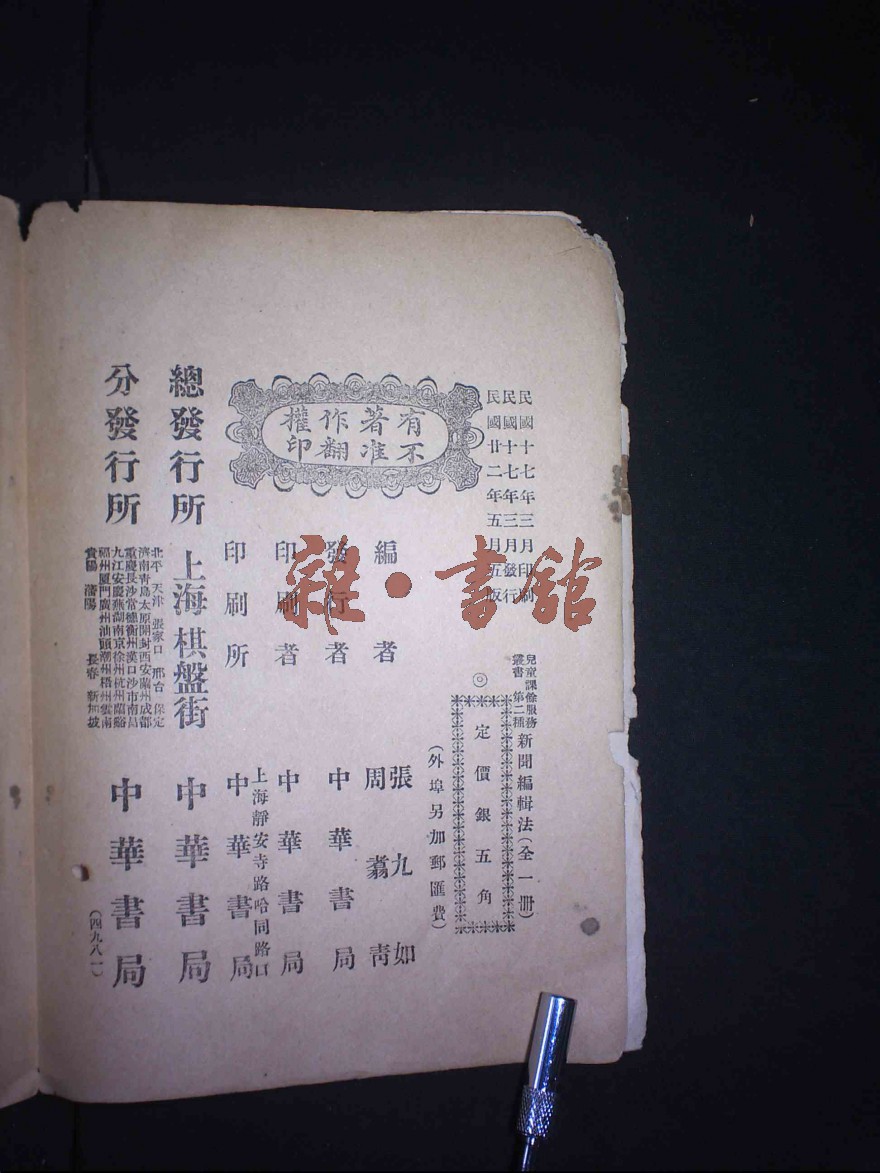 民國十七年三月印刷
民國十七年三月發行
民國廿二年五月五版
有著作權
不准翻印
兒童課餘服務
叢書第二種
新聞編輯法(全一册)
◎定價銀五角
(外埠另加郵匯費)
編者 張九如
周翥青
發行者 中華書局
印刷者 中華書局
上海靜安寺路哈同路口
印刷所 中華書局
總發行所 上海棋盤街 中華書局
分發行所
北平 天津 張家口 邢台 保定
濟南青島太原開封西安蘭州成都
重慶長沙常德衡州漢口沙市南昌
九江安慶蕪湖南京徐州杭州蘭谿
福州厦門廣州汕頭潮州梧州雲南
貴陽 瀋陽 長春 新加坡
中華書局
(四九八一)
雜·書館